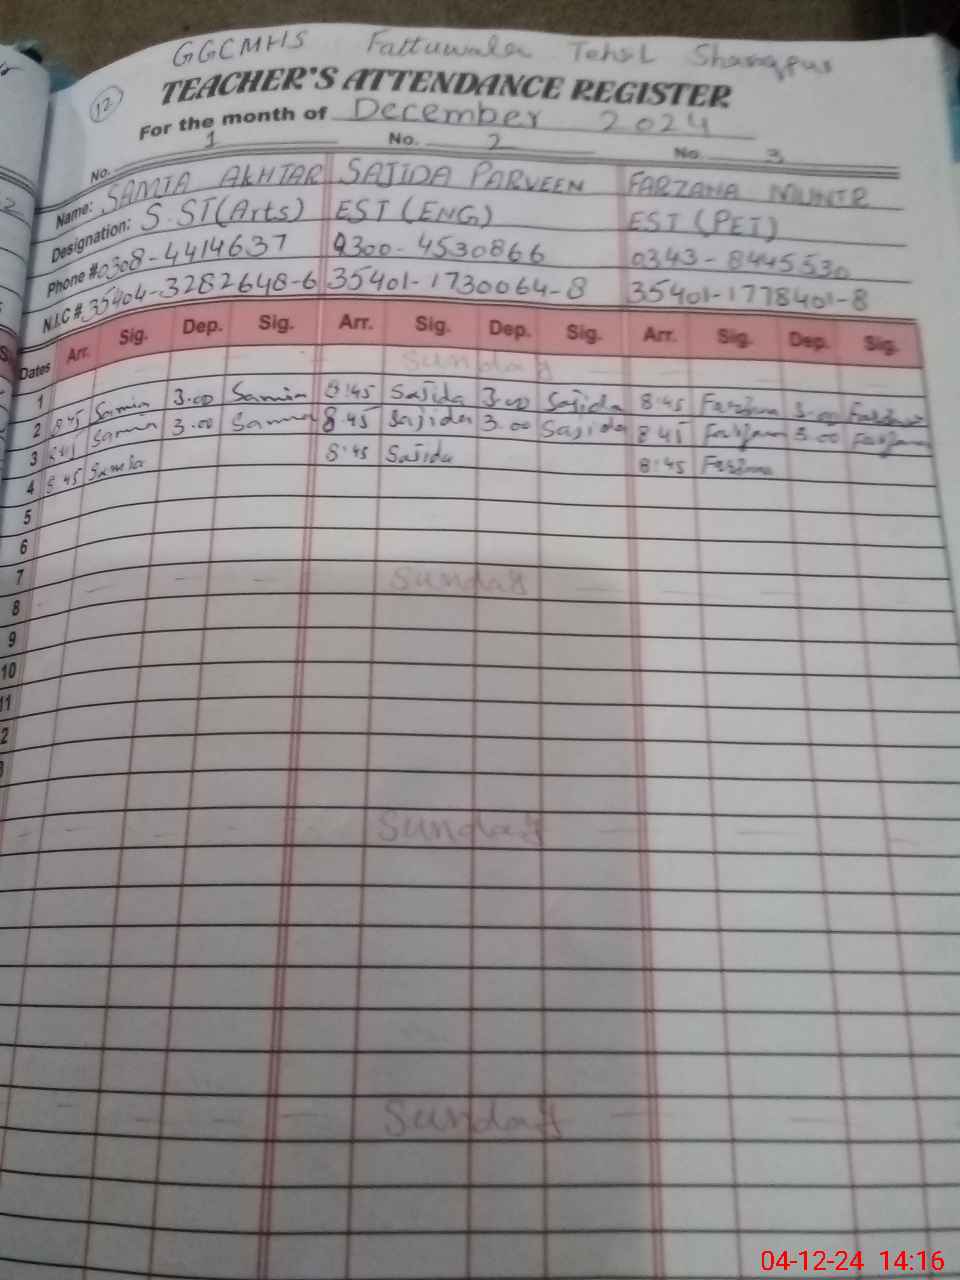 GGCMHS Fattuwala Tehsil Sharaqpur
12
TEACHER'S ATTENDANCE REGISTER
For the month of December 2024
No. 1 No. 2 No. 3
Name: SAMIA AKHTAR SAJIDA PARVEEN FARZANA MUNIR
Designation: S.ST(Arts) EST (ENG) EST (PET)
Phone # 0308-4414637 0300-4530866 0343-8445530
N.I.C # 35404-3282648-6 35401-1730064-8 35401-1778401-8
Dates Arr. Sig. Dep. Sig. Arr. Sig. Dep. Sig. Arr. Sig. Dep. Sig.
1 Sunday
2 8:45 Samia 3.00 Samia 8:45 Sajida 3.00 Sajida 8:45 Farzana 3.00 Farzana
3 8:45 Samia 3.00 Samia 8.45 Sajida 3.00 Sajida 8:45 Farzana 3.00 Farzana
4 8:45 Samia 8:45 Sajida 8:45 Farzana
5
6
7
8 Sunday
9
10
11
2
Sunday
Sunday
04-12-24 14:16